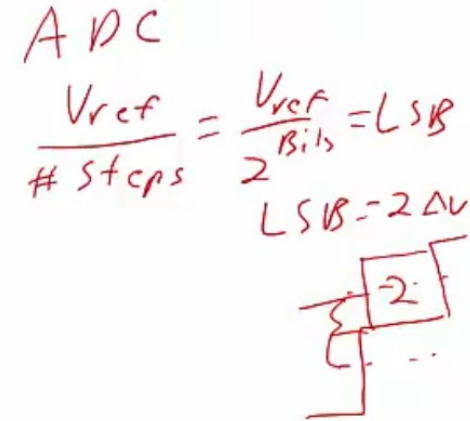 ADC
Vref / # Steps = Vref / 2^Bits = LSB
LSB = 2 ΔV
2